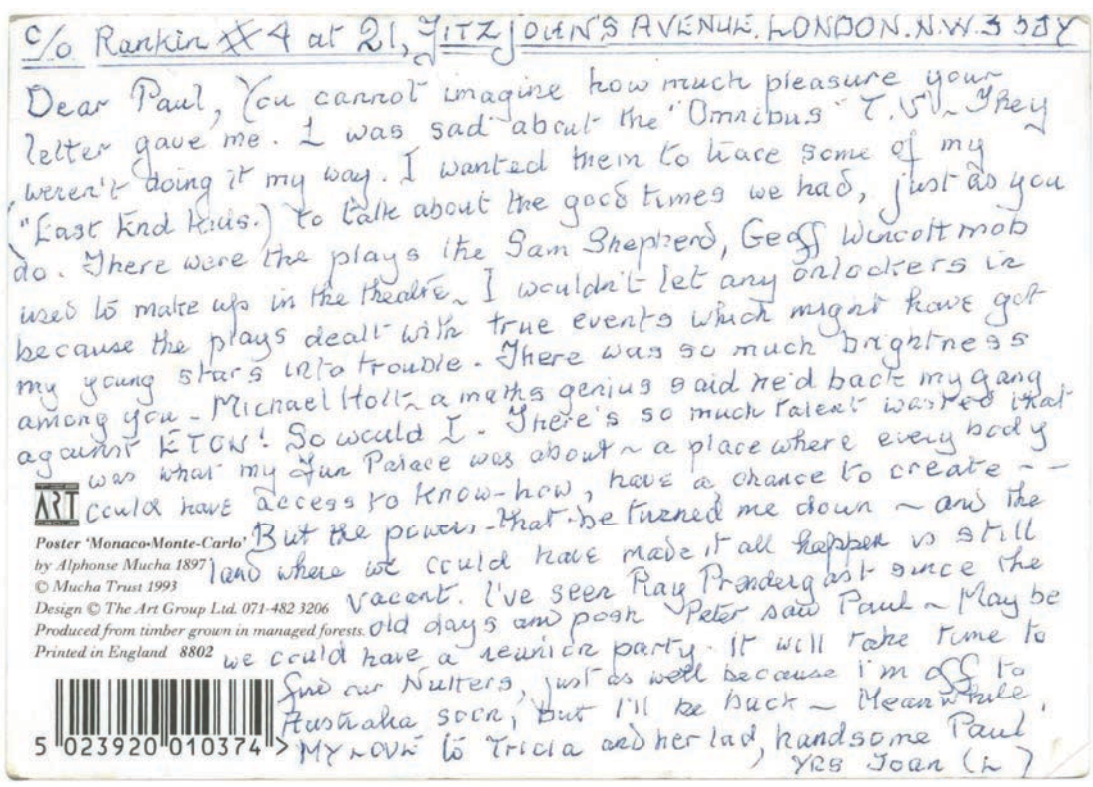 c/o Rankin #4 at 21, FITZJOHN'S AVENUE. LONDON. N.W.3 5JY
Dear Paul, You cannot imagine how much pleasure your
letter gave me. I was sad about the "Omnibus" T.V. ~ They
weren't doing it my way. I wanted them to trace some of my
"East End Kids.) to talk about the good times we had, just as you
do. There were the plays the Sam Shepherd, Geoff Wincott mob
used to make up in the theatre ~ I wouldn't let any onlookers in
because the plays dealt with true events which might have got
my young stars into trouble. There was so much brightness
among you - Michael Holt, a maths genius said he'd back my gang
against ETON! So would I - There's so much talent wasted that
was what my Fun Palace was about ~ a place where every body
could have access to know-how, have a chance to create - -
But the powers-that-be turned me down ~ and the
land where we could have made it all happen is still
vacant. I've seen Ray Prendergast since the
old days and posh Peter saw Paul ~ May be
we could have a reunion party. It will take time to
find our Nutters, just as well because i'm off to
Australia soon, but I'll be back ~ Meanwhile,
MY LOVE to Tricia and her lad, handsome Paul
YRS Joan (L)
ART
Poster 'Monaco•Monte-Carlo'
by Alphonse Mucha 1897
© Mucha Trust 1993
Design © The Art Group Ltd. 071-482 3206
Produced from timber grown in managed forests.
Printed in England 8802
5 023920 010374 >